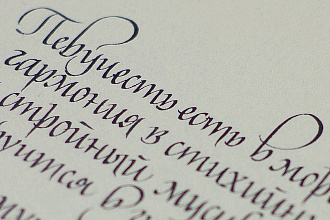 Певучесть есть в мор
гармония в стихийн
стройный муси